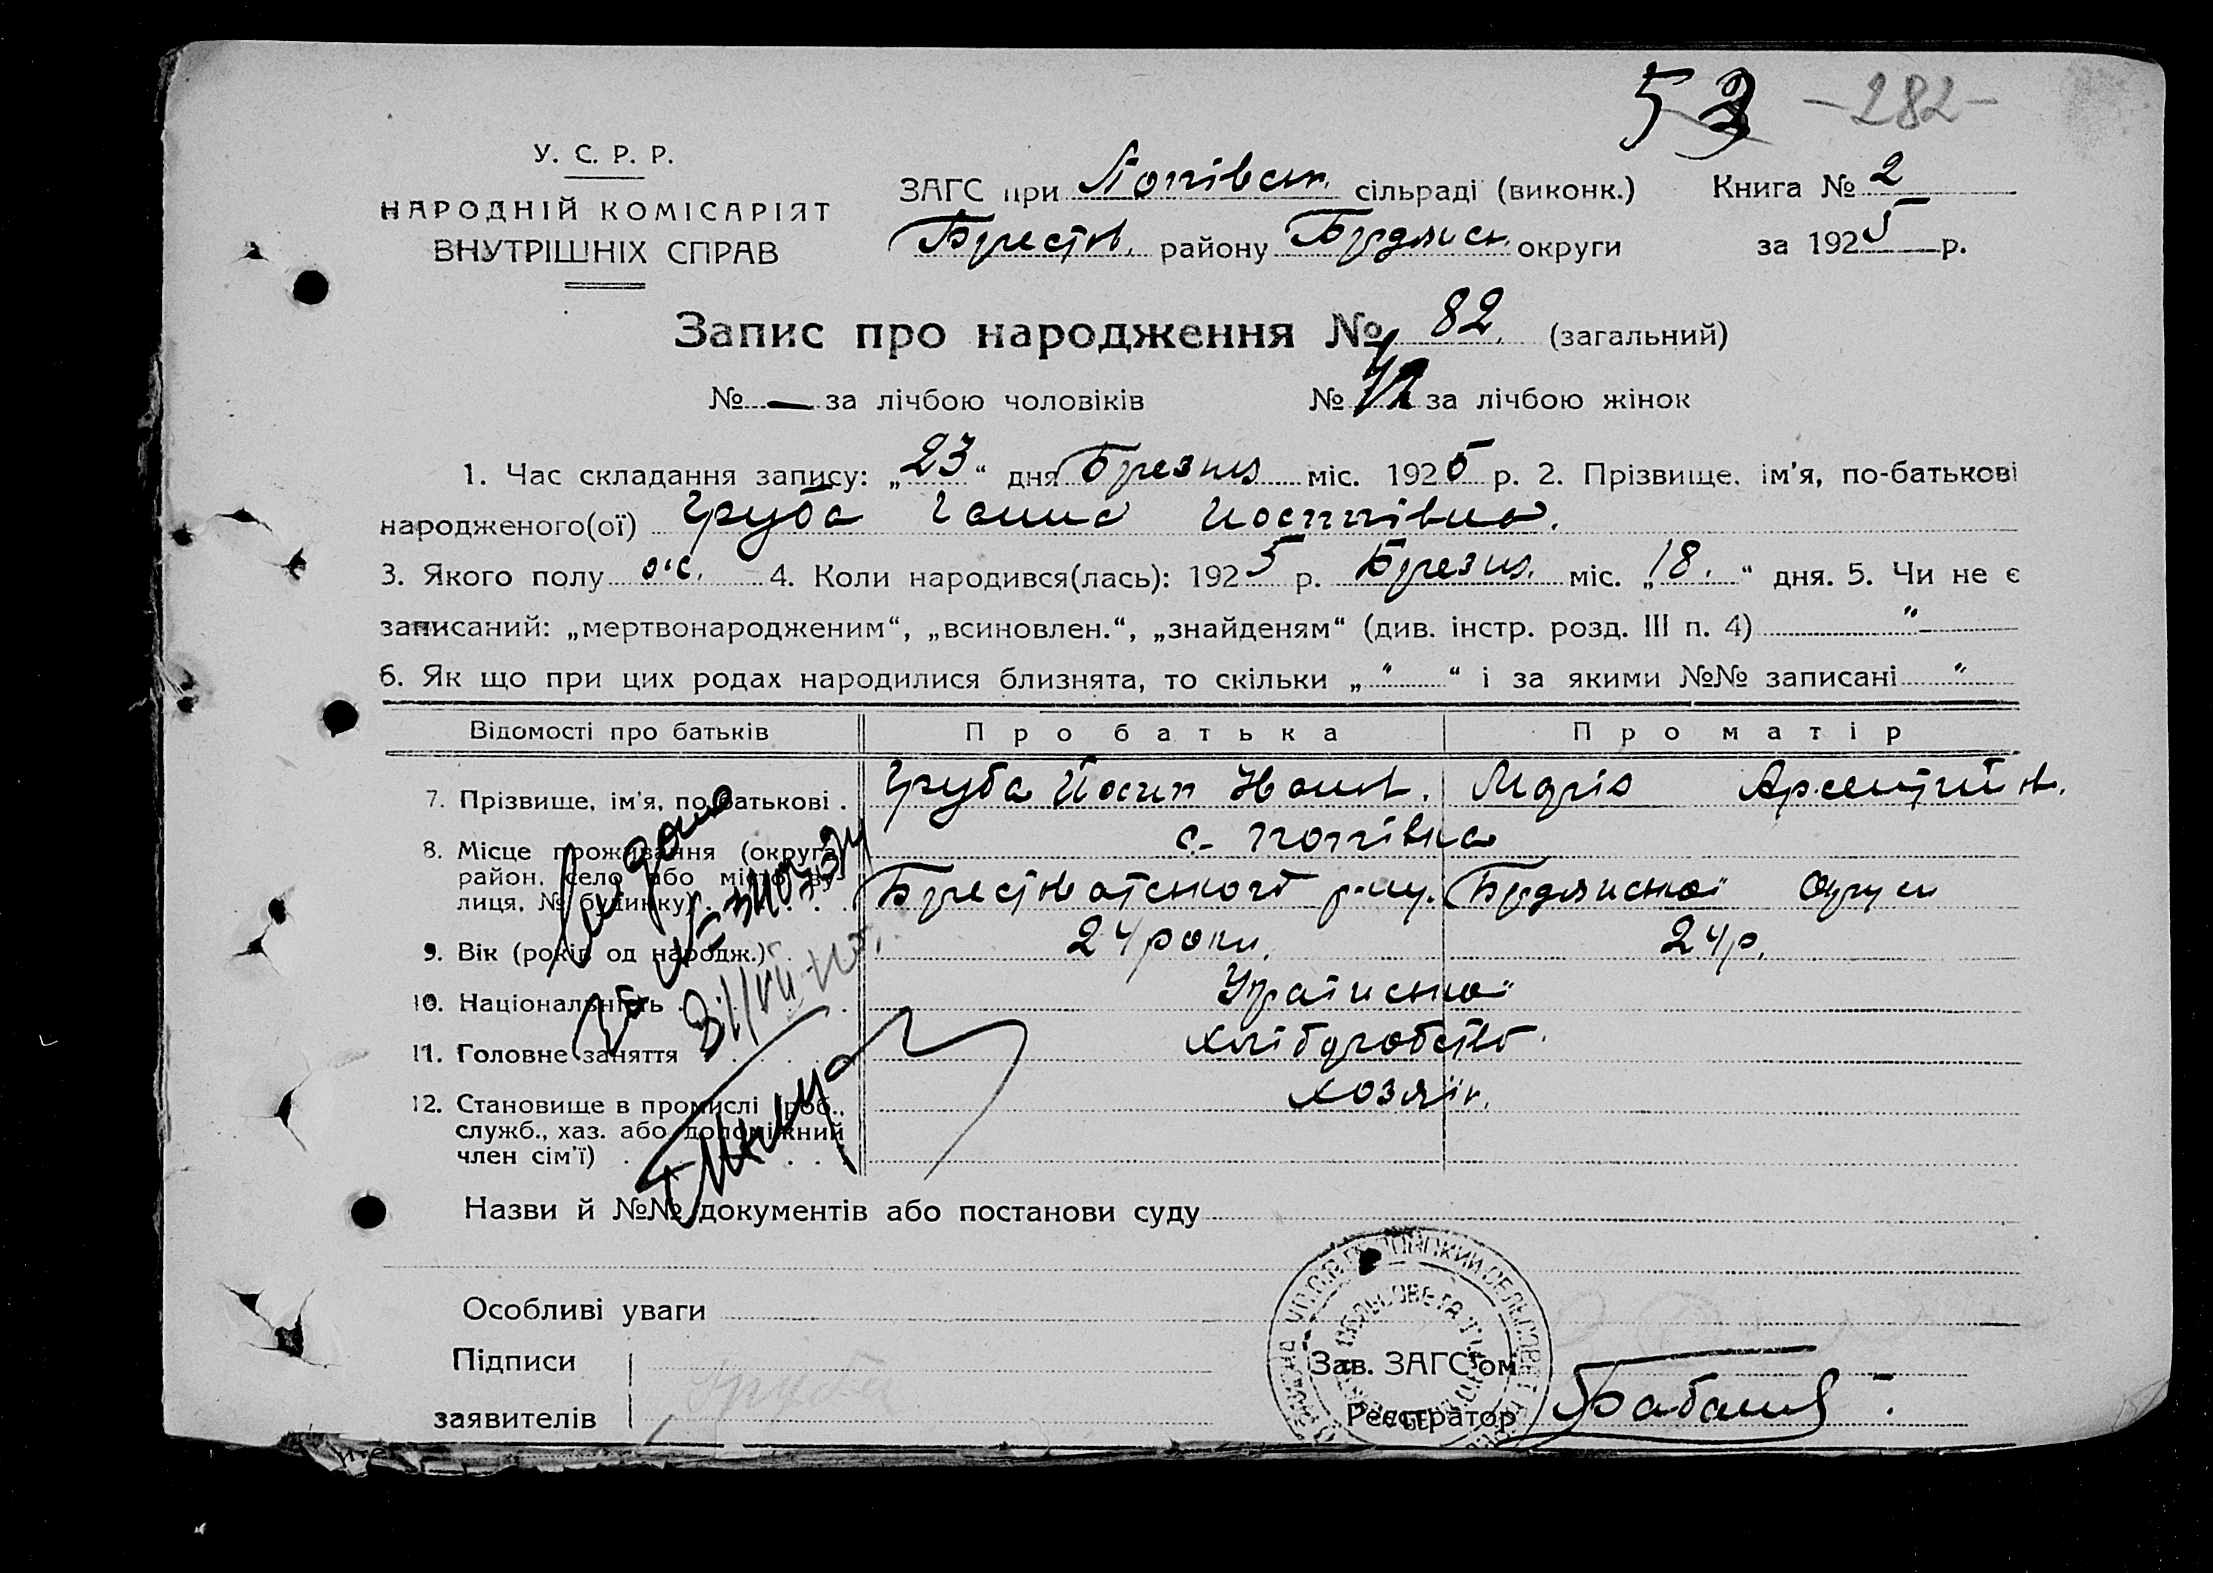 53 -282-
У. С. Р. Р.
НАРОДНІЙ КОМІСАРІЯТ
ВНУТРІШНІХ СПРАВ
ЗАГС при Попівськ. сільраді (виконк.) Книга № 2
Брестов. району Бердянськ. округи за 1925 р.
Запис про народження № 82. (загальний)
№ — за лічбою чоловіків № 42 за лічбою жінок
1. Час склада­ння запису: „23“ дня Березня міс. 1925 р. 2. Прізвище, ім'я, по-батькові
народженого(ої) Груба Ганна Йосипівна.
3. Якого полу ж. 4. Коли народився(лась): 1925 р. Березня. міс. „18.“ дня. 5. Чи не є
записаний: „мертвонародженим“, „всиновлен.“, „знайденям“ (див. інстр. розд. III п. 4) "
6. Як що при цих родах народилися близнята, то скільки „ " “ і за якими №№ записані "
Відомості про батьків Про батька Про матір
7. Прізвище, ім'я, по батькові . Груба Йосип Іван. Марія
с. Попівка
8. Місце проживання (округа
район, село або місто, ву-
лиця, № будинку) . Брестоватського р-ну. Бердянської Округи
9. Вік (років од народж.) . 24 роки. 24 р.
10. Національність . Українська
11. Головне заняття . хліборобство.
12. Становище в промислі (роб., хозяїн.
служб., хаз. або допоміжний
член сім'ї) .
Назви й №№ документів або постанови суду
Особливі уваги
Підписи
заявителів Груба
Зав. ЗАГС'ом
Реєстратор